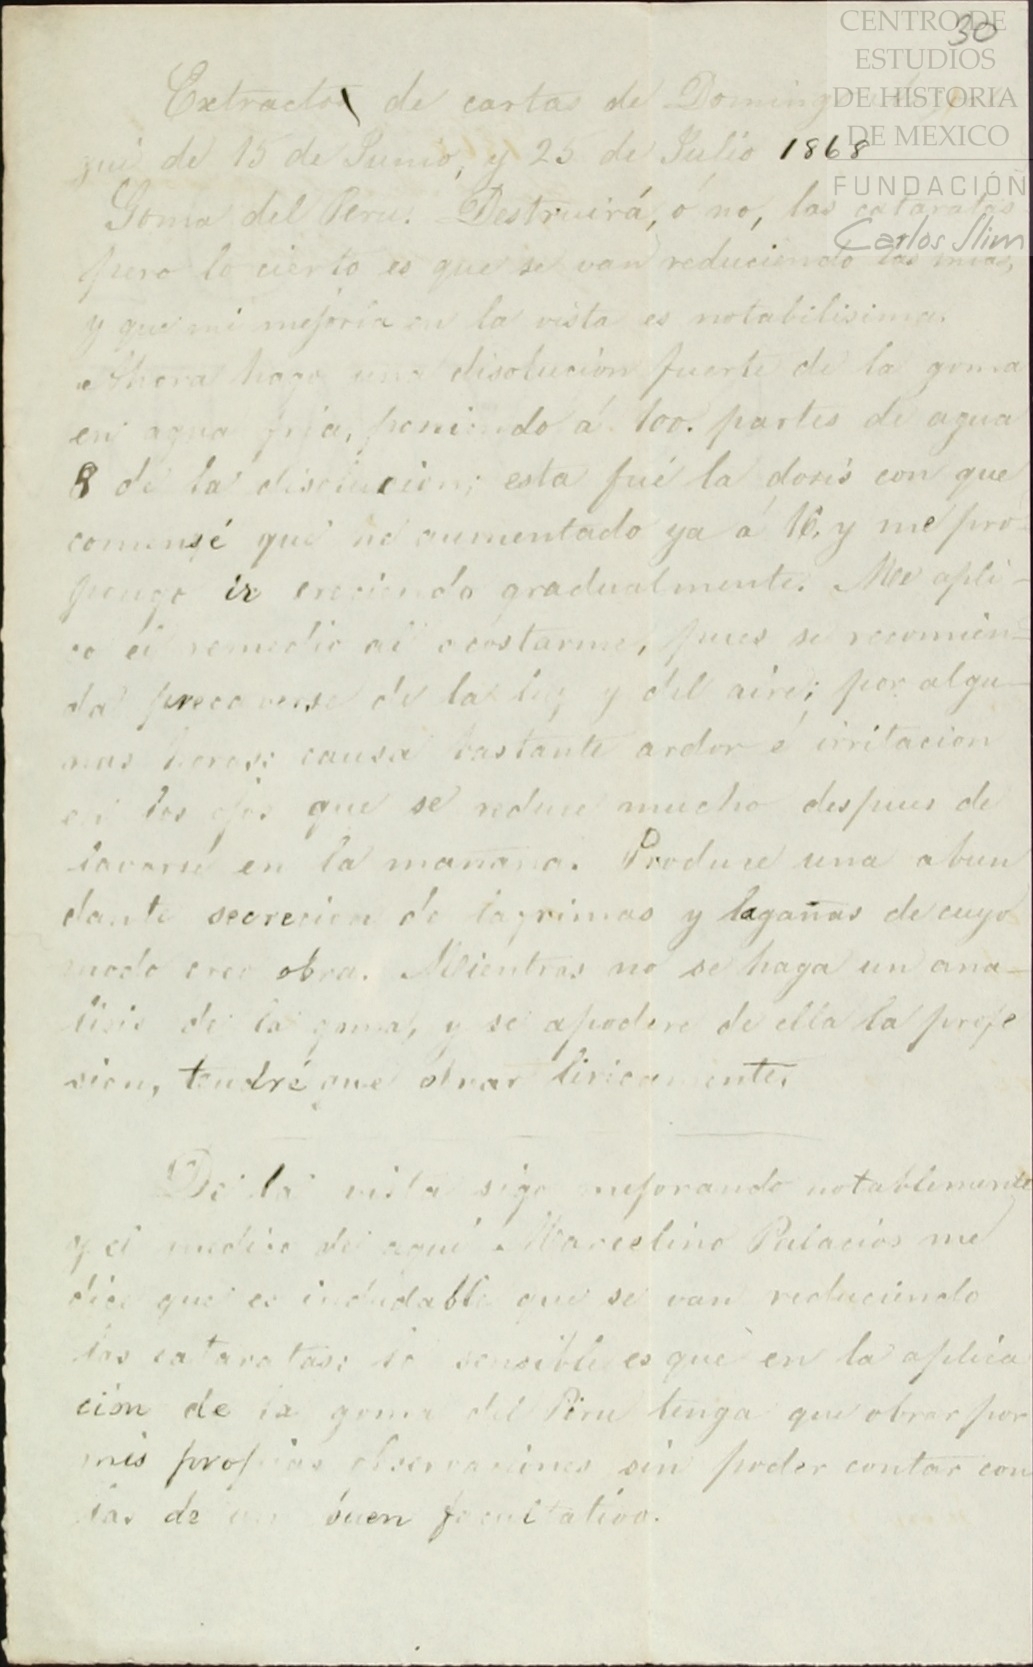 CENTRO DE
ESTUDIOS
DE HISTORIA
DE MEXICO
FUNDACIÓN
Carlos Slim
30
Extractos de cartas de Domingo
zui de 15 de Junio, y 25 de Julio 1868
Goma del Peru. Destruirá, ó no, las cataratas
pero lo cierto es que se van reduciendo las mias,
y que mi mejoria en la vista es notabilisima.
Ahora hago una disolucion fuerte de la goma
en agua fria, poniendo á 100. partes de agua
8 de la disolucion; esta fué la doris con que
comensé que he aumentado ya á 16, y me pro-
pongo ir creciendo gradualmente. Me apli-
co el remedio al acostarme, pues se recomien-
da precaverse de la luz y del aire; por algu-
nas horas; causa bastante ardor é irritacion
en los ojos que se reduce mucho despues de
lavarse en la mañana. Produce una abun
dante secrecion de lagrimas y lagañas de cuyo
modo creo obra. Mientras no se haga un ana-
lisis de la goma, y se apodere de ella la profe
sion, tendré que obrar liricamente.
De la vista sigo mejorando notablemente
y el medico de aqui Marcelino Palacios me
dice que es indudable que se van reduciendo
las cataratas: lo sensible es que en la aplica
cion de la goma del Peru tenga que obrar por
mis propias observaciones sin poder contar con
las de un buen facultativo.